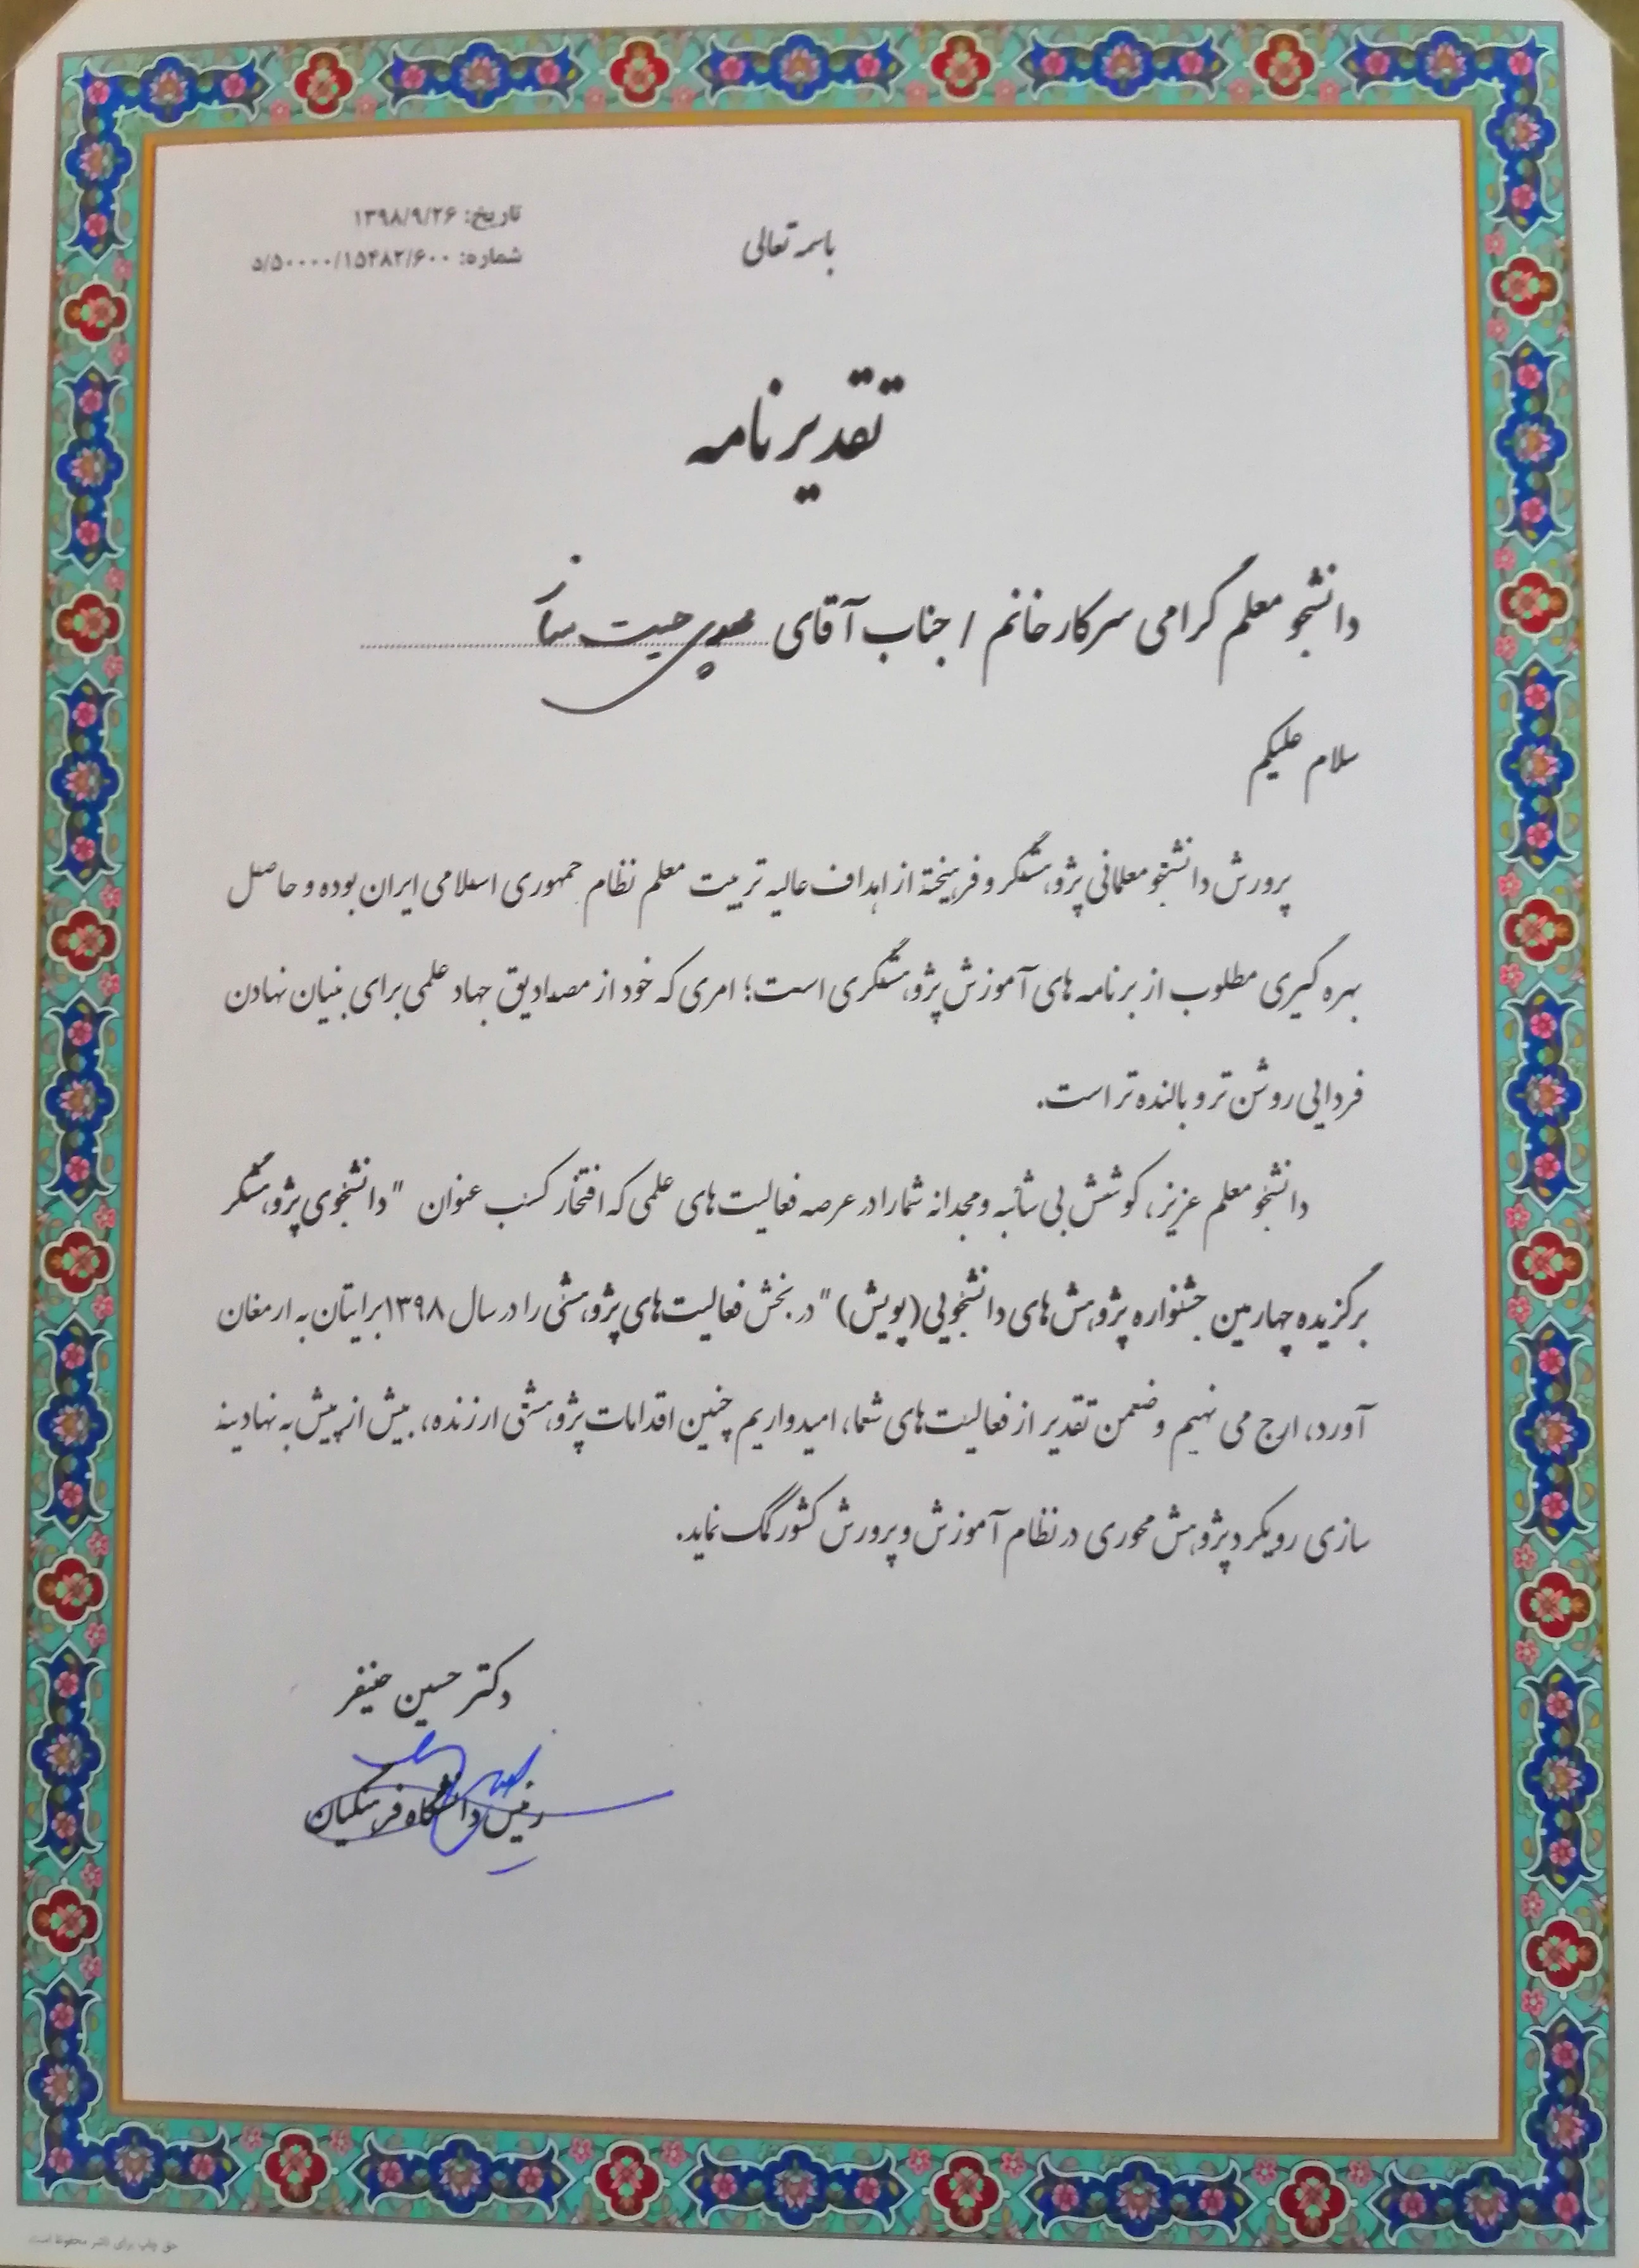 باسمه تعالی
تاریخ: ۱۳۹۸/۹/۲۶
شماره: ۵/۵۰۰۰۰/۱۵۴۸۲/۶۰۰
تقدیرنامه
دانشجو معلم گرامی سرکار خانم / جناب آقای
سلام علیکم
پرورش دانشجو معلمانی پژوهشگر و فرهیخته از اهداف عالیه تربیت معلم نظام جمهوری اسلامی ایران بوده و حاصل
بهره گیری مطلوب از برنامه های آموزش پژوهشگری است؛ امری که خود از مصادیق جهاد علمی برای بنیان نهادن
فردایی روشن تر و بالنده تر است.
دانشجو معلم عزیز، کوشش بی شائبه و مجدانه شما را در عرصه فعالیت های علمی که افتخار کسب عنوان "دانشجوی پژوهشگر
برگزیده چهارمین جشنواره پژوهش های دانشجویی (پویش)" در بخش فعالیت های پژوهشی را در سال ۱۳۹۸ برایتان به ارمغان
آورد، ارج می نهیم و ضمن تقدیر از فعالیت های شما، امیدواریم چنین اقدامات پژوهشی ارزنده، بیش از پیش به نهادینه
سازی رویکرد پژوهش محوری در نظام آموزش و پرورش کشور کمک نماید.
دکتر حسین خنیفر
رئیس دانشگاه فرهنگیان
حق چاپ برای ناشر محفوظ است